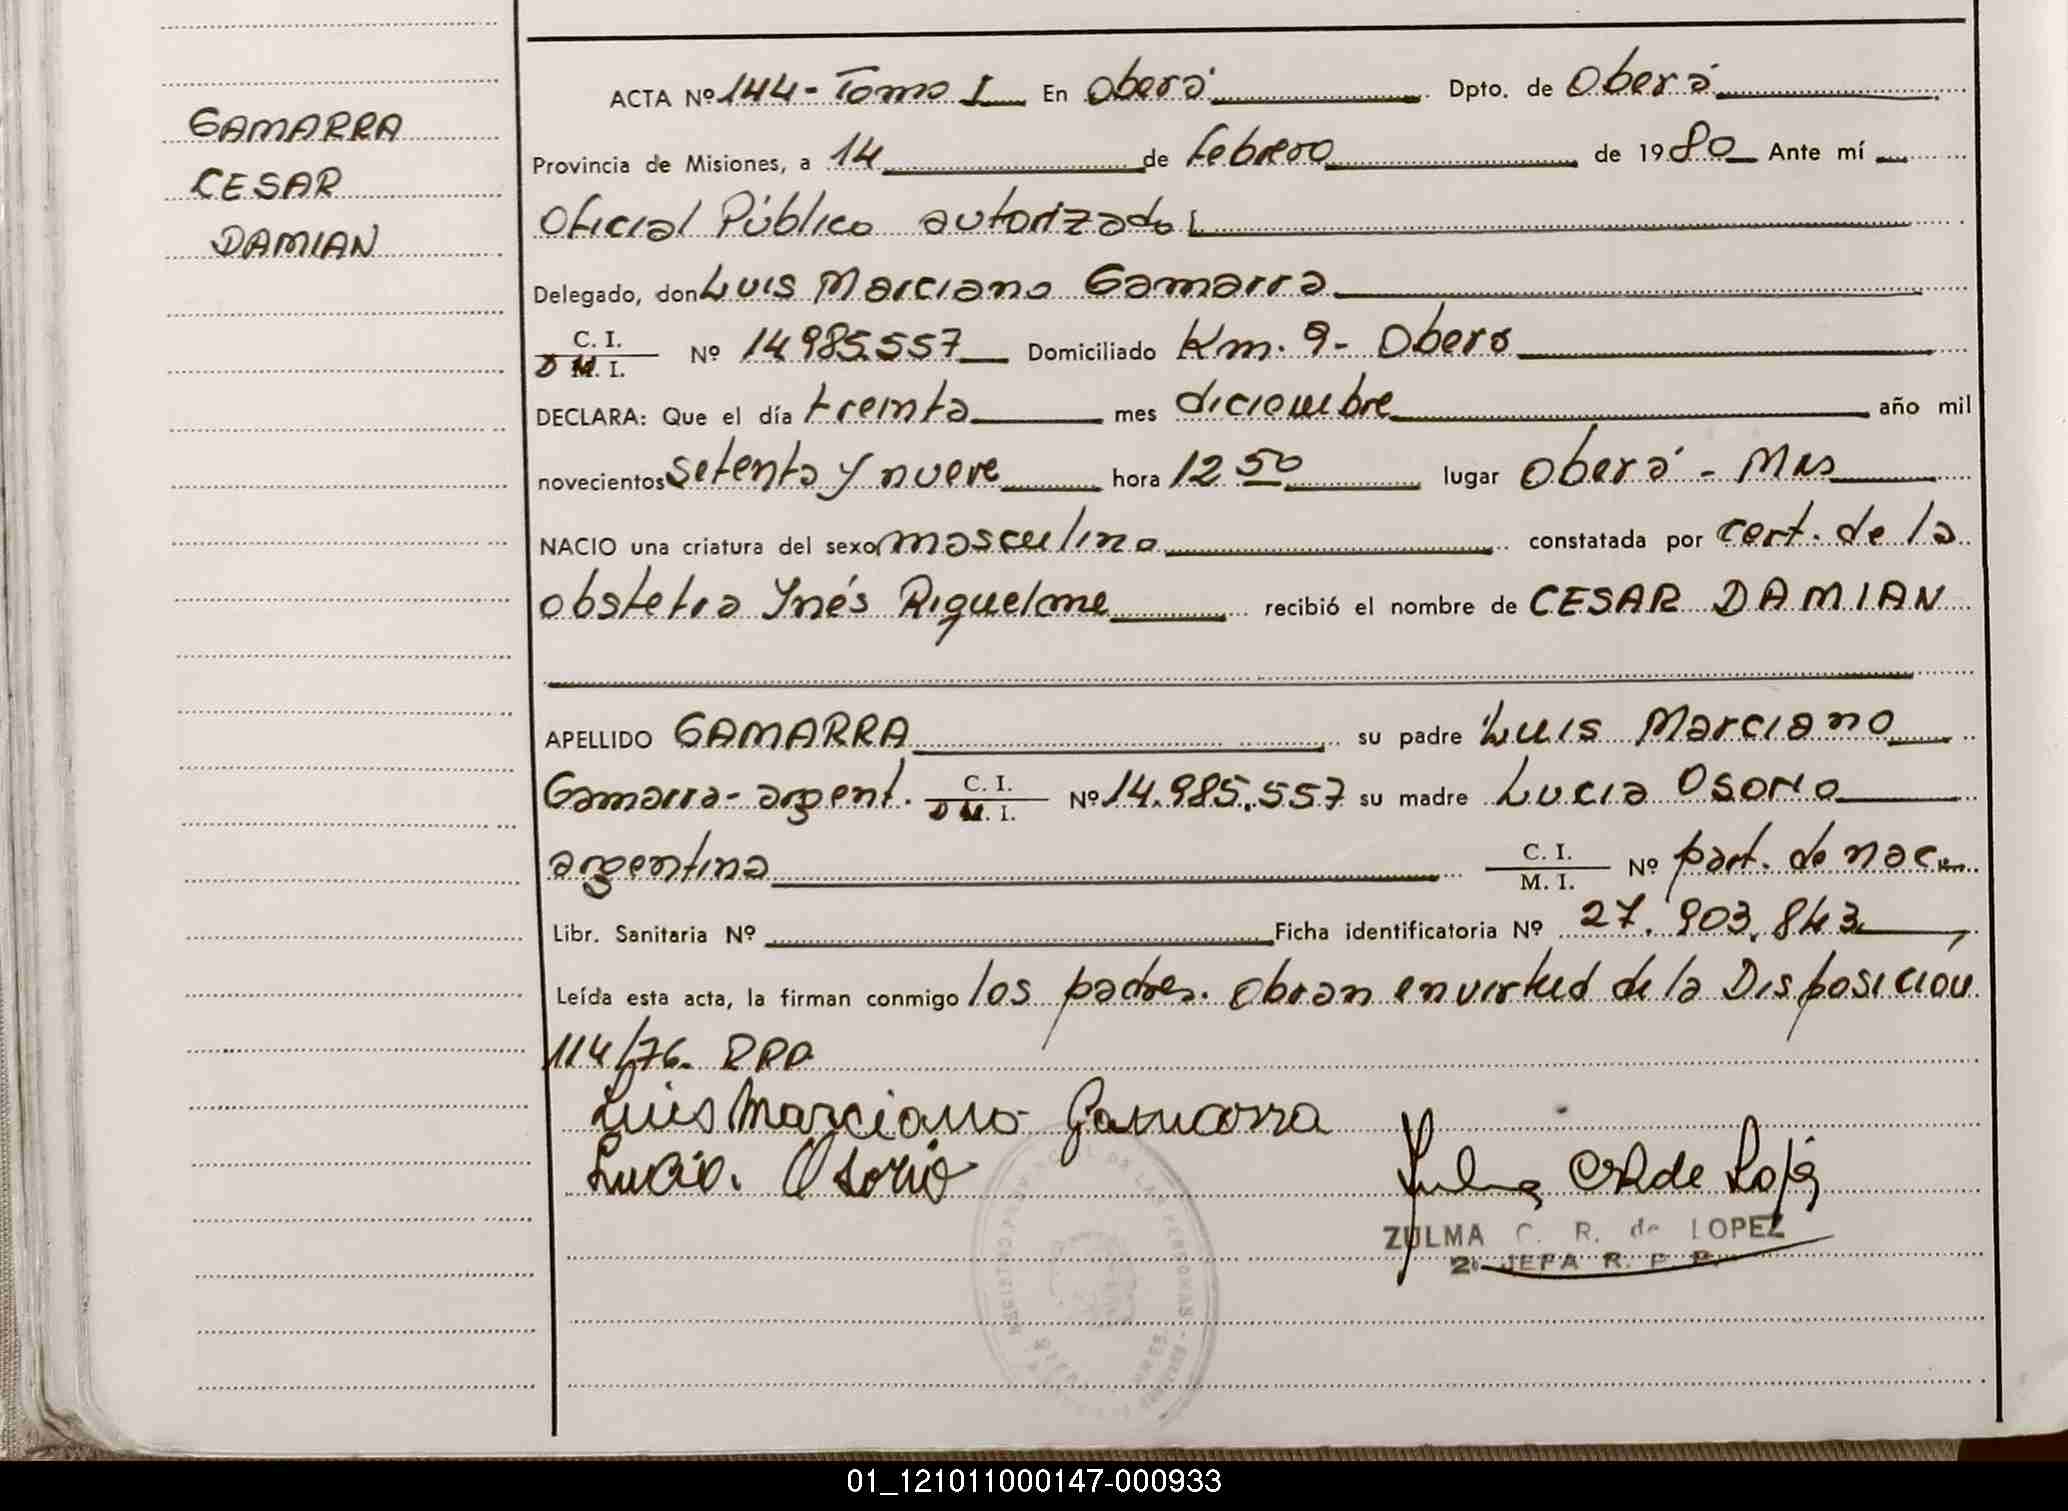 GAMARRA
CESAR
DAMIAN
ACTA Nº 144 - Tomo I En Oberá Dpto. de Oberá
Provincia de Misiones, a 14 de febrero de 1980 Ante mí
Oficial Público autorizado
Delegado, don Luis Marciano Gamarra
C. I.
D M. I. Nº 14.985.557 Domiciliado Km. 9 - Oberá
DECLARA: Que el día treinta mes diciembre año mil
novecientos setenta y nueve hora 12 50 lugar Oberá - Mns
NACIO una criatura del sexo masculino constatada por cert. de la
obstetra Inés Riquelme recibió el nombre de CESAR DAMIAN
APELLIDO GAMARRA su padre Luis Marciano
Gamarra - argent. C. I.
D M. I. Nº 14.985.557 su madre Lucia Osorio
argentina C. I.
M. I. Nº part. de nac.
Libr. Sanitaria Nº Ficha identificatoria Nº 27.903.843
Leída esta acta, la firman conmigo los padres. Obran en virtud de la Disposición
114/76. RPP
Luis Marciano Gamarra
Lucia Osorio
ZULMA C. R. de LOPEZ
JEFA R. P. P.
01_121011000147-000933